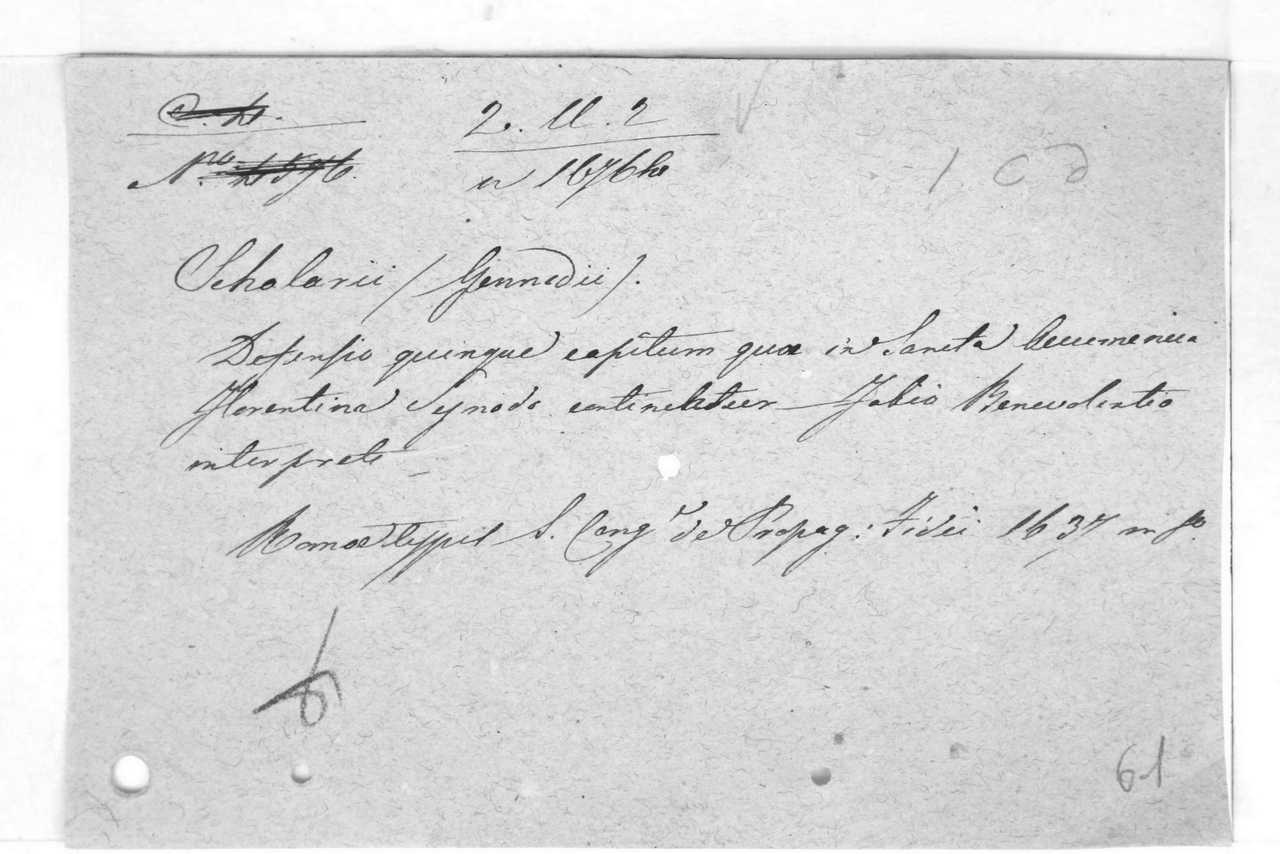 2. U. 2
Nro
Scholarii (Gennadii).
Defensio quinque capitum quæ in Sancta Oecumenica
Florentina Synodo continebtuer Fabio Benevolentio
interprete
Romæ typis S. Congr. de Propag: Fidei 1637 in fo.
61